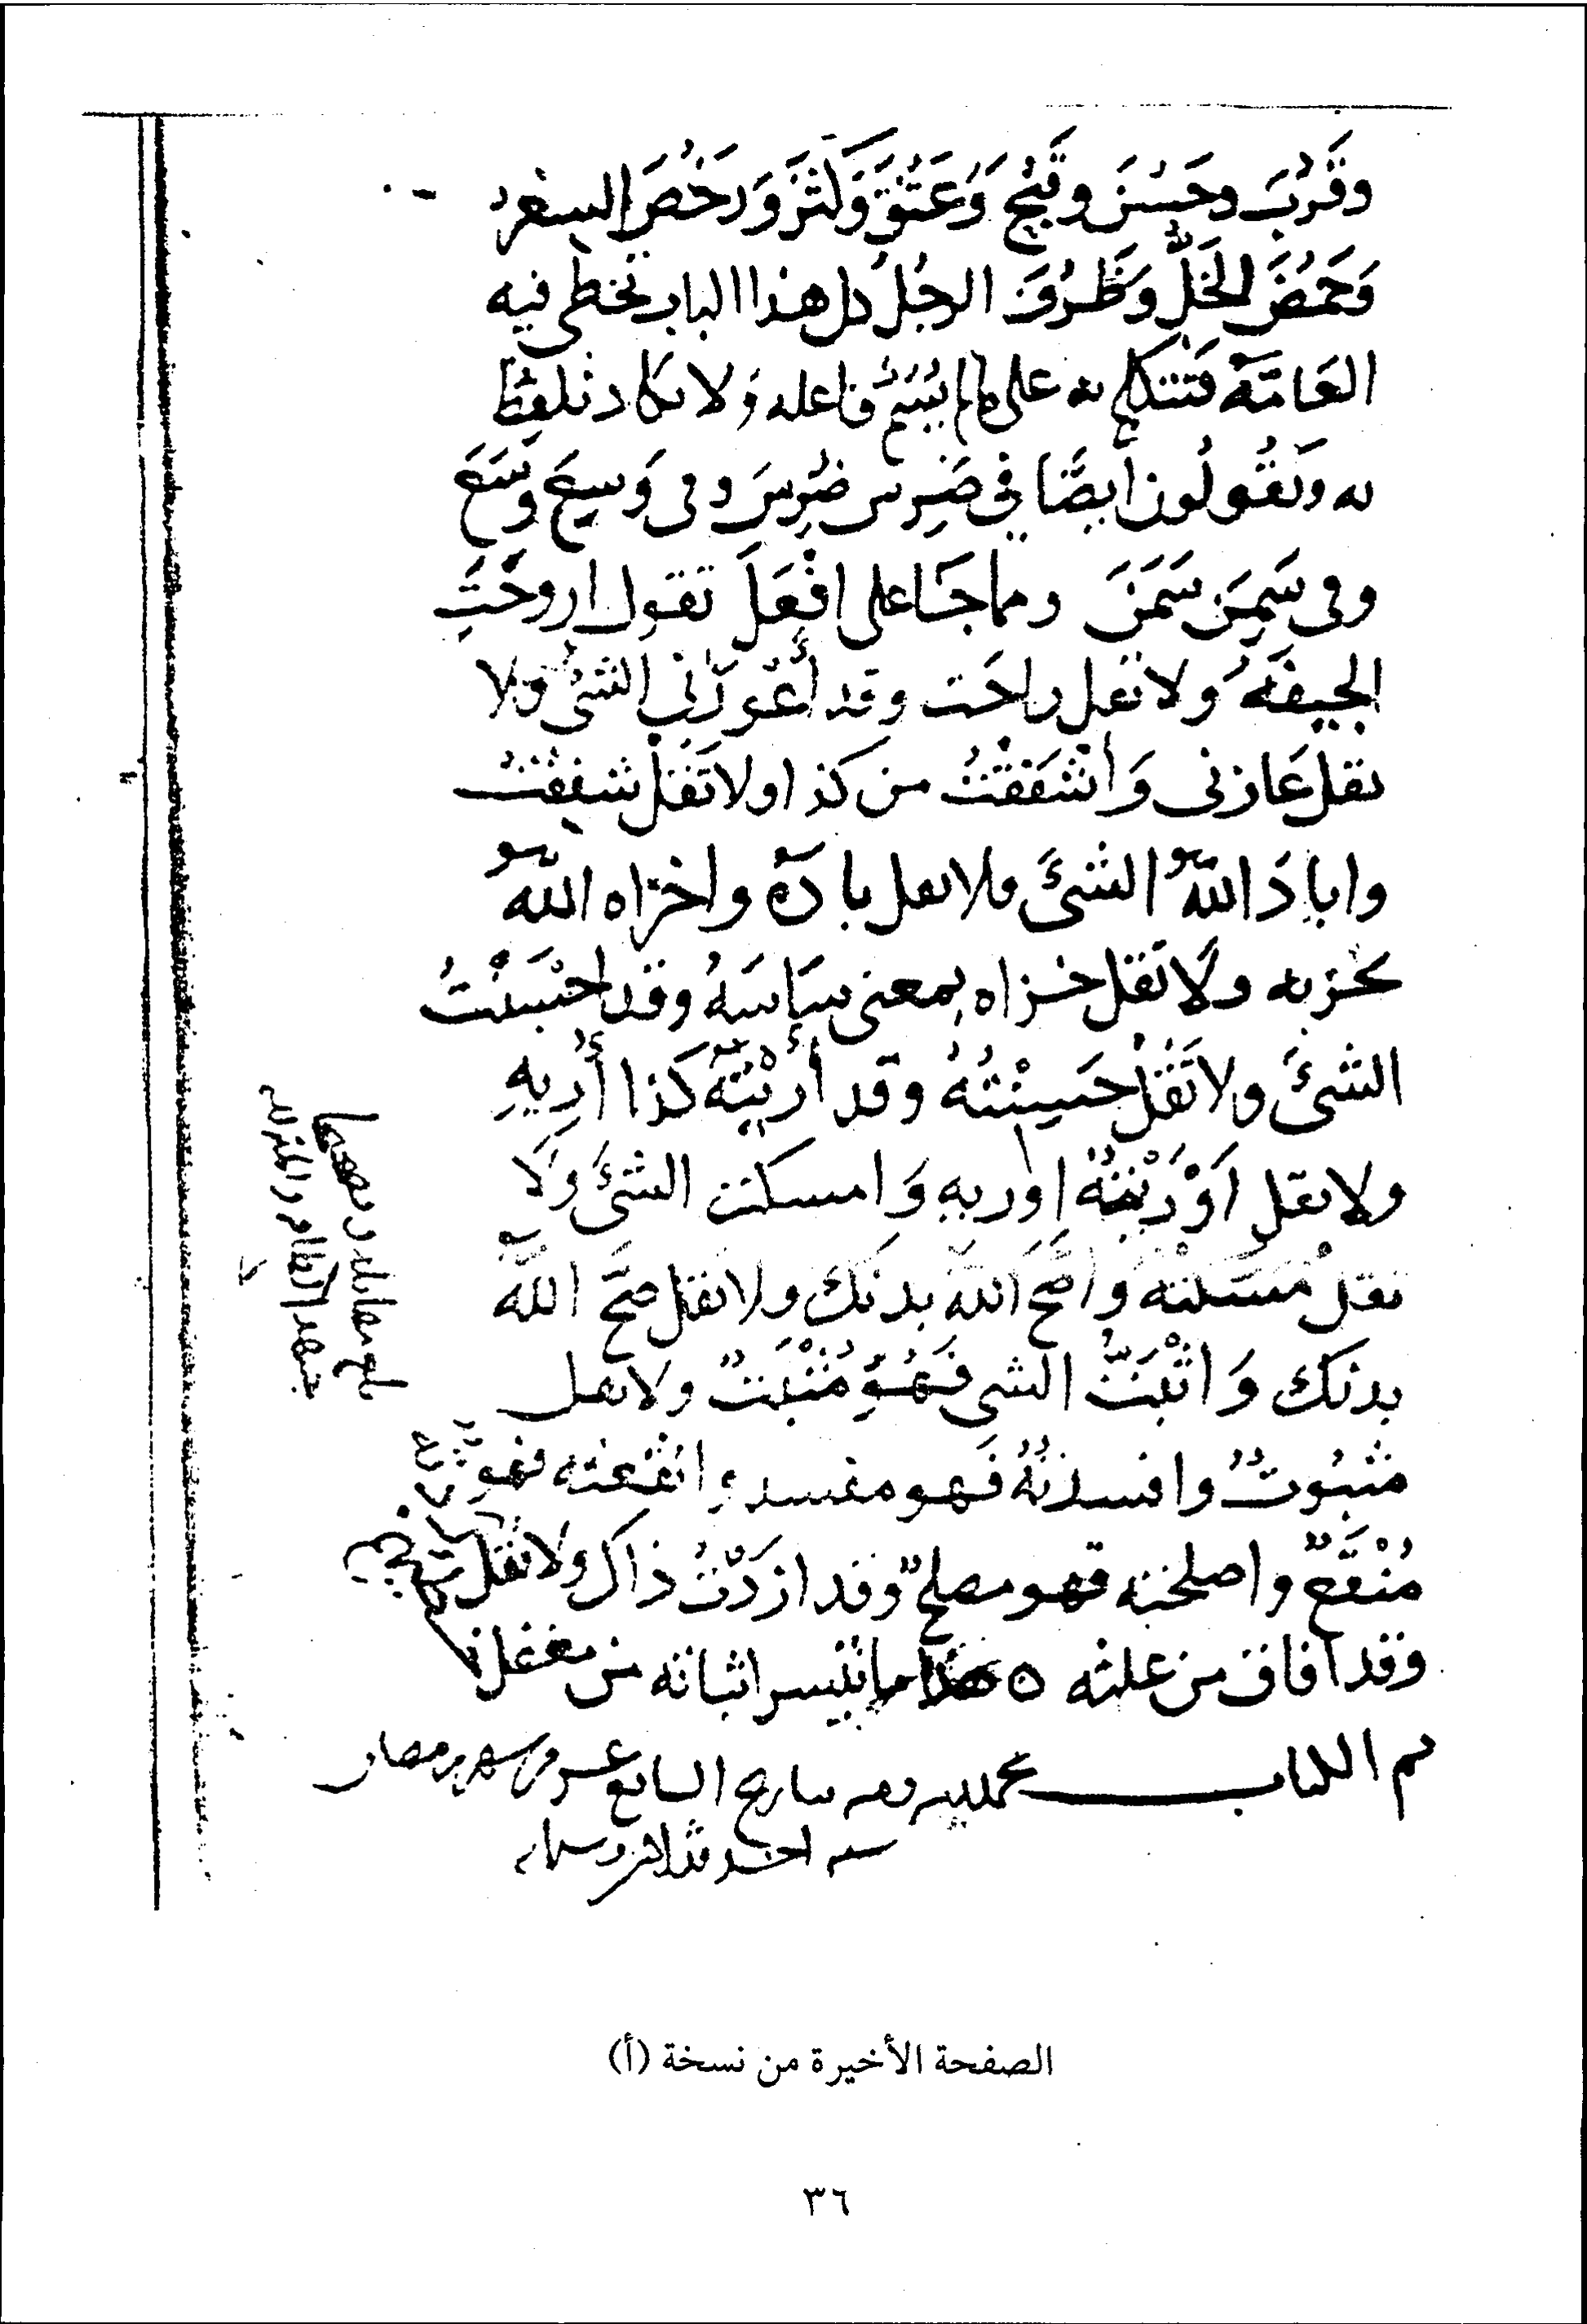 وقَرُبَ وحَسُنَ وقَبُحَ وَعَتُقَ وَكَثُرَ وَرَخُصَ السعرُ
وَحَمُضَ الخَلُّ وَظَرُفَ الرجُلُ كل هذا الباب تخطى فيه
العَامَّةُ فتتكلم به على ما لم يُسَمَّ فاعله ولا تكاد تلفظ
به ويَقُولُون أيضًا في ضَرِسَ ضُرِسَ وفى وَسِعَ وُسَعَ
وفى سَمِنَ سَمَنَ ومما جَا على افْعَلَ تقول اروَحَتِ
الجيفَةُ ولا تقل راحَت وقد أَعْوزَنى الشىُ ولا
تقل عَازنى وَأَشفَقْتُ من كذا ولا تَقُلْ شفِقْتُ
واباَدَ اللهُ الشىَ ولا تقل بادَهُ واخزاه اللهُ
يخزيه ولا تقل خزاه بمعنى سَاسَهُ وقد احْبَسْتُ
الشىَ ولا تَقُلْ حَبَسْتُهُ وقد أَرَيْتُهُ كذا أُرِيهِ
ولا تقل اَوْرَيْتُهُ اوريهِ وَامسكت الشىَ وَلَا
تقلْ مَسَكْتُه وَأَصَحَّ اللهُ بدنَكَ ولا تقل صَحَّ اللهُ
بدنَكَ وَاثْبَتُّ الشى فَهُوَ مُثْبَتٌ ولا تقل
مَثبُوتٌ وافسدْتُهُ فَهو مفسد وانقعته فهو
مُنْقَعٌ واصلحته فهو مصلحٌ وقد ازدَدْتُ ذاك ولا تقل
وقد افاق من علته ه هذا ما تيسر اثباته من
تم الكتاب بحمد الله بتاريخ السابع عشر من شهر رمضان
سنه احد وثلاثين
الصفحة الأخيرة من نسخة (أ)
٣٦